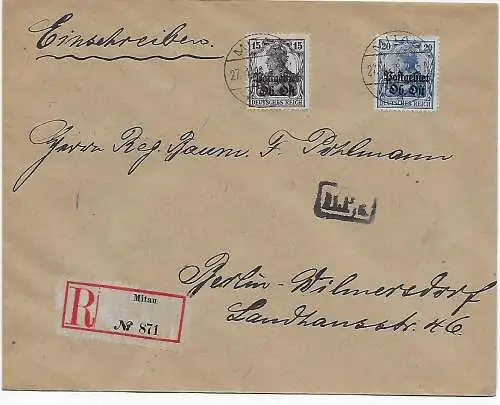 Einschreiben.
15 15
Postgebiet
Ob. Ost
DEUTSCHES REICH
20 20
Postgebiet
Ob. Ost
DEUTSCHES REICH
27.
Herrn Reg. Baum. F. Pohlmann
Berlin-Wilmersdorf
Landhausstr. 46
R
Mitau
№ 871